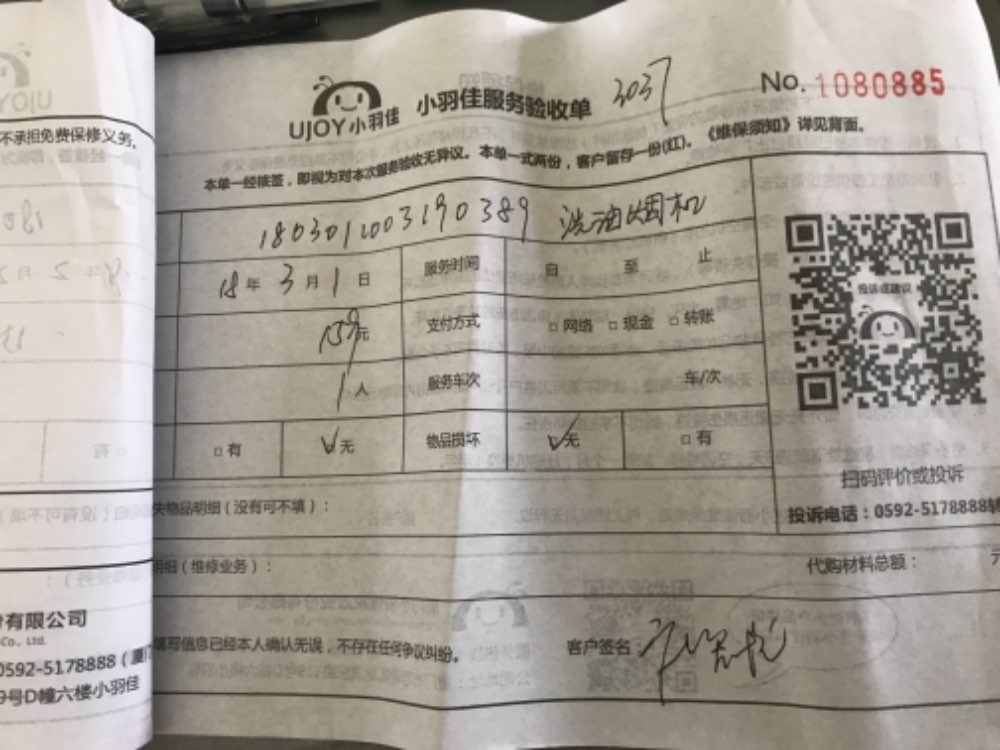 UJOY小羽佳 小羽佳服务验收单 3037 No. 1080885
本单一经核签，即视为对本次服务验收无异议。本单一式两份，客户留存一份(红)。《维保须知》详见背面。
不承担免费保修义务。
1803012003190389 洗油烟机
18年3月1日 服务时间 自 至 止
159元 支付方式 □网络 □现金 □转账
1人 服务车次 车/次
□有 ☑无 物品损坏 ☑无 □有
投诉或建议
扫码评价或投诉
失物品明细（没有可不填）：
投诉电话：0592-5178888转
明细（维修业务）： 代购材料总额： 元
有限公司
Co., Ltd.
填写信息已经本人确认无误，不存在任何争议纠纷。 客户签名：
0592-5178888（厦门
9号D幢六楼小羽佳